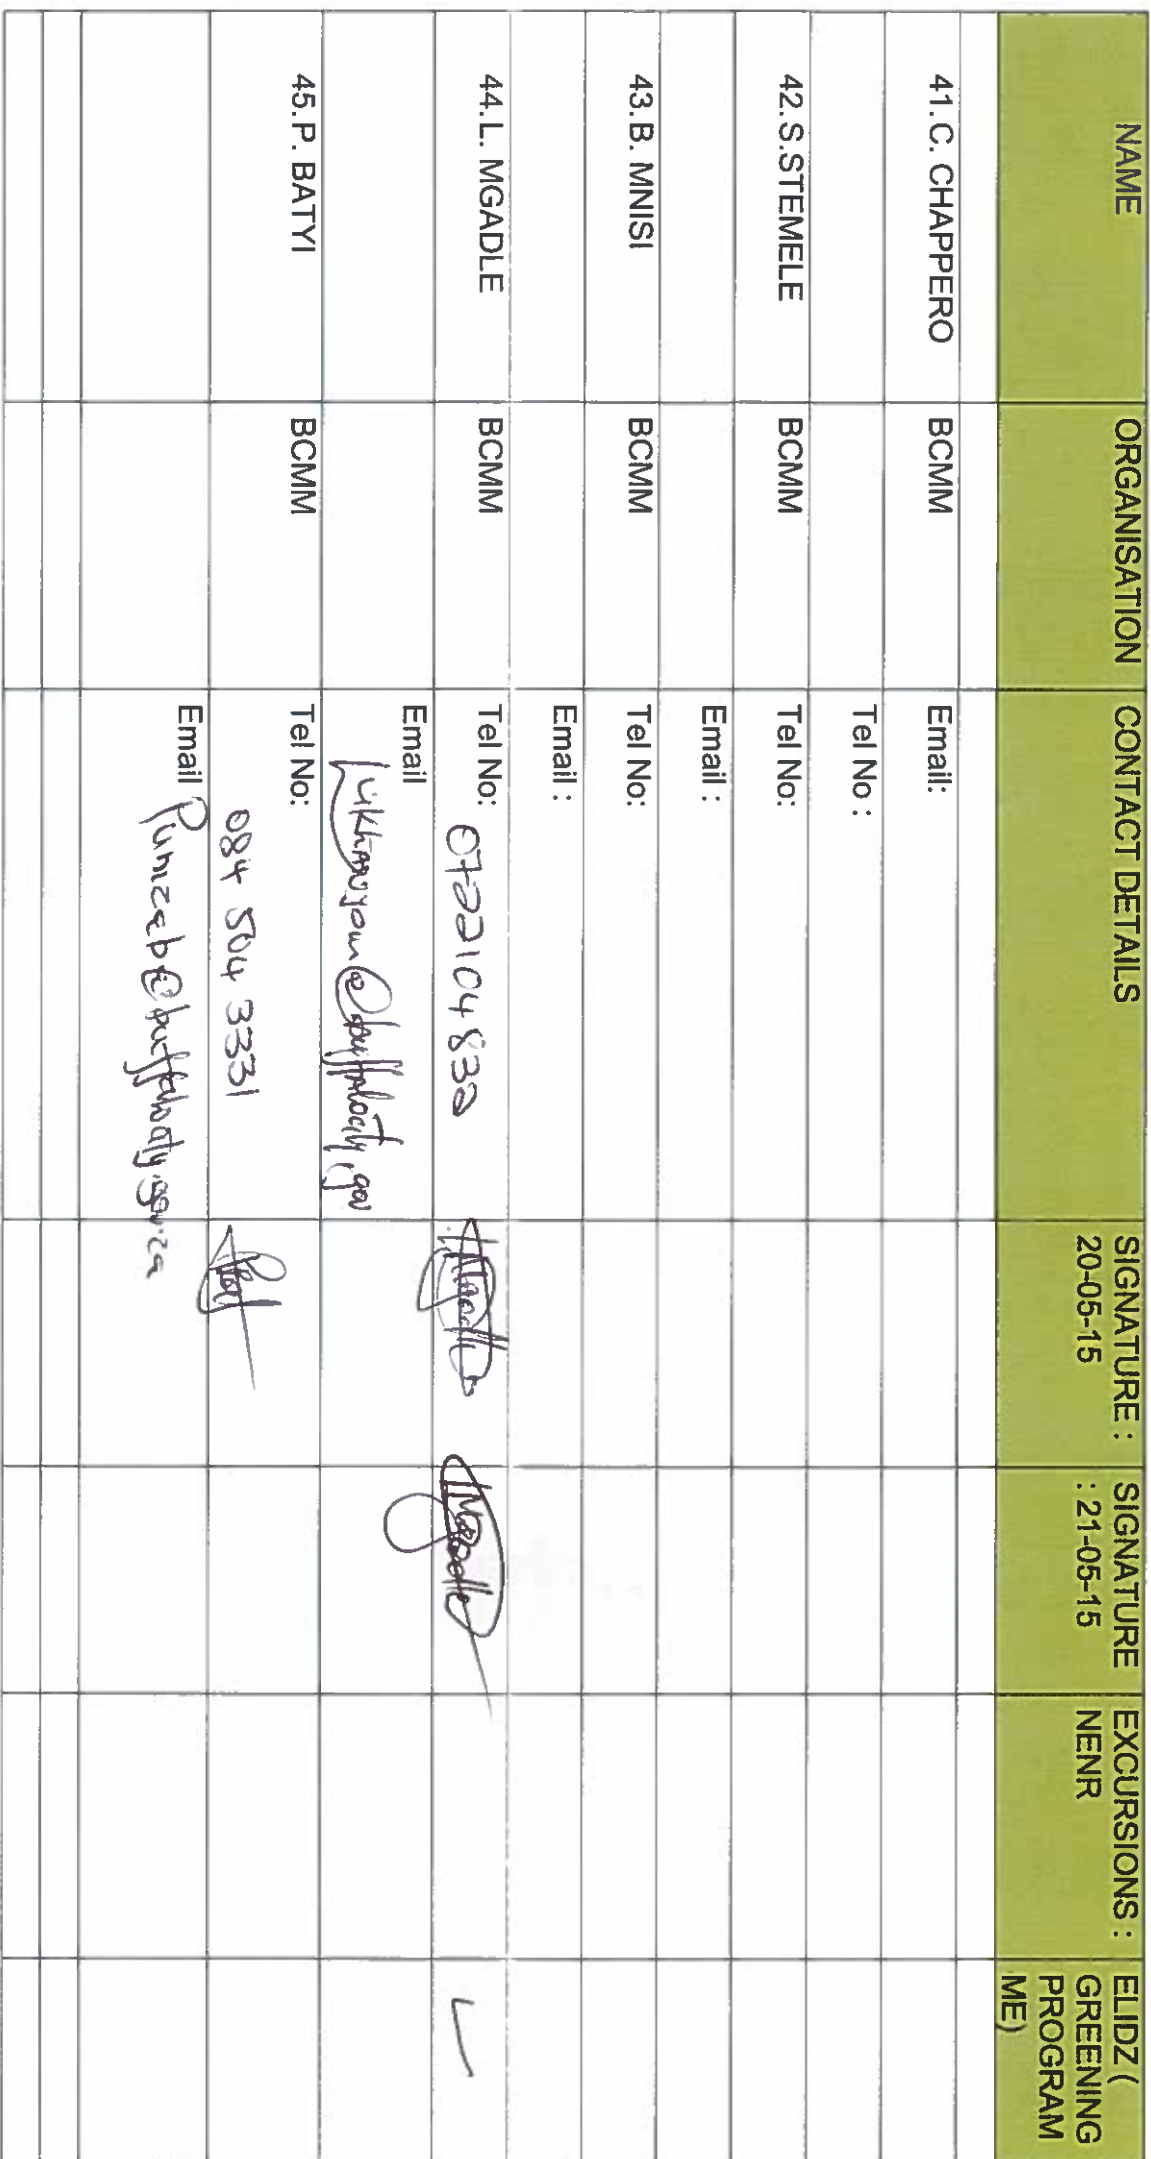 NAME
ORGANISATION
CONTACT DETAILS
SIGNATURE :
20-05-15
SIGNATURE
: 21-05-15
EXCURSIONS :
NENR
ELIDZ (
GREENING
PROGRAM
ME)
41. C. CHAPPERO
BCMM
Email:
Tel No :
42. S.STEMELE
BCMM
Tel No:
Email :
43. B. MNISI
BCMM
Tel No:
Email :
44. L. MGADLE
BCMM
Tel No: 0722104832
Email
Lukhanyom@buffalocity.gov
45. P. BATYI
BCMM
Tel No:
084 504 3331
Email
Pumzab@buffalocity.gov.za